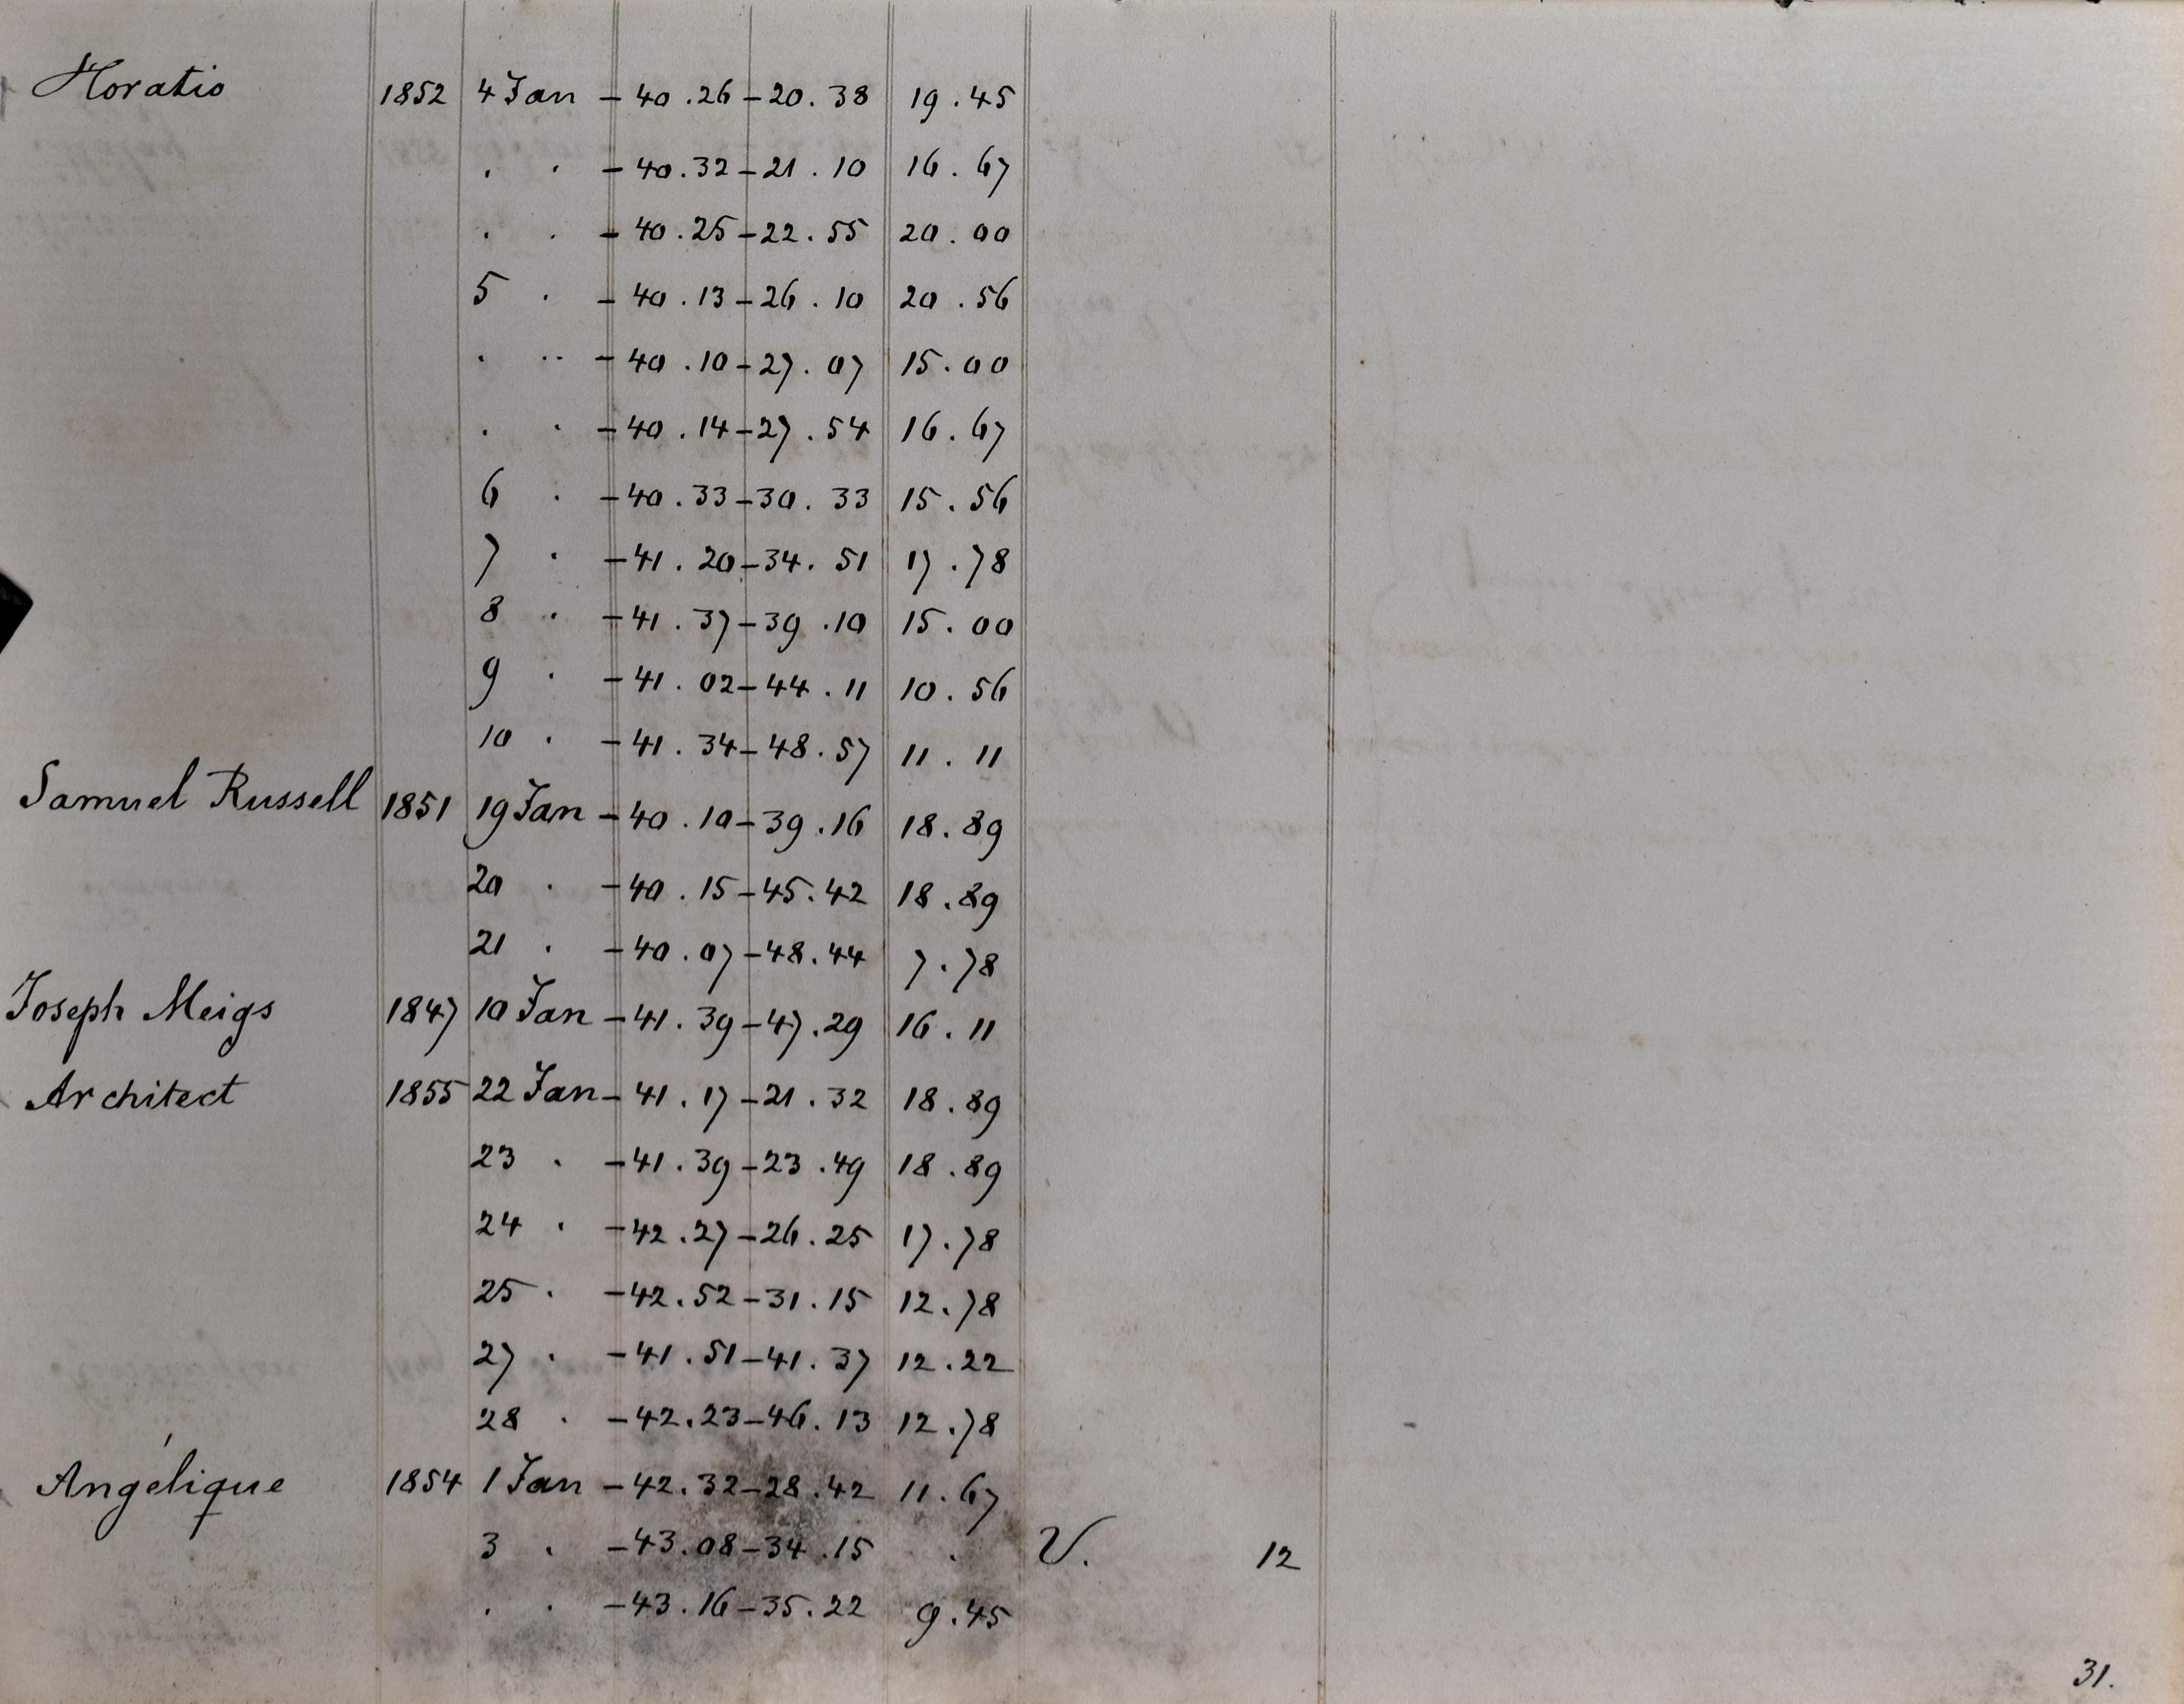 Horatio 1852 4 Jan - 40.26 - 20.38 19.45
. . - 40.32 - 21.10 16.67
. . - 40.25 - 22.55 20.00
5 . - 40.13 - 26.10 20.56
. .. - 40.10 - 27.07 15.00
. . - 40.14 - 27.54 16.67
6 . - 40.33 - 30.33 15.56
7 . - 41.20 - 34.51 17.78
8 . - 41.37 - 39.10 15.00
9 . - 41.02 - 44.11 10.56
10 . - 41.34 - 48.57 11.11
Samuel Russell 1851 19 Jan - 40.10 - 39.16 18.89
20 . - 40.15 - 45.42 18.89
21 . - 40.07 - 48.44 7.78
Joseph Meigs 1847 10 Jan - 41.39 - 47.29 16.11
Architect 1855 22 Jan - 41.17 - 21.32 18.89
23 . - 41.39 - 23.49 18.89
24 . - 42.27 - 26.25 17.78
25 . - 42.52 - 31.15 12.78
27 . - 41.51 - 41.37 12.22
28 . - 42.23 - 46.13 12.78
Angélique 1854 1 Jan - 42.32 - 28.42 11.67
3 . - 43.08 - 34.15 . V. 12
. . - 43.16 - 35.22 9.45
31.